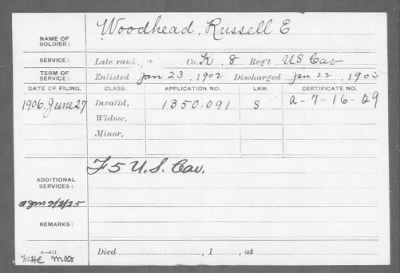 NAME OF SOLDIER: Woodhead, Russell E
SERVICE: Late rank, " Co. K, 8 Reg't US Cav
TERM OF SERVICE: Enlisted Jan 23, 1902 Discharged Jan 22, 1905
DATE OF FILING. CLASS. APPLICATION NO. LAW. CERTIFICATE NO.
1906, June 27 Invalid, 1350.091 S a-7-16-29
Widow,
Minor,
ADDITIONAL SERVICES: F 5 U.S. Cav.
REMARKS:
Died , 1 , at